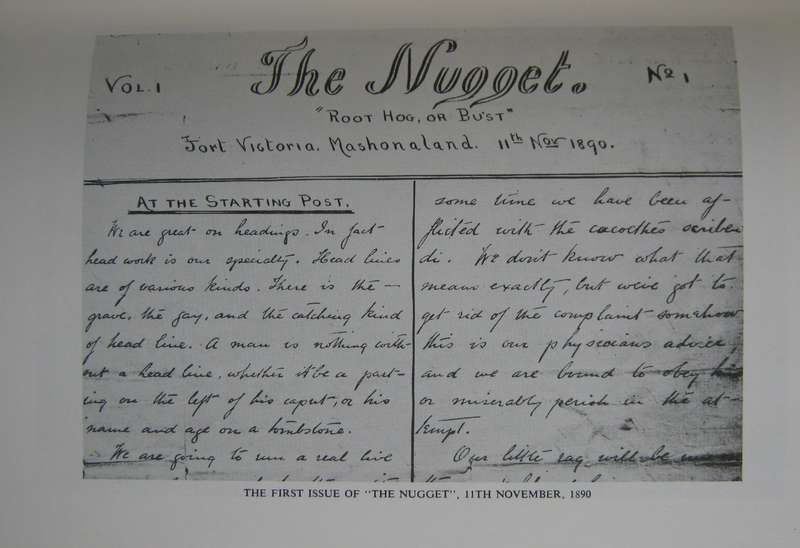 VOL. 1
The Nugget.
No 1
"ROOT HOG, OR BUST"
Fort Victoria. Mashonaland. 11th Nov 1890.
AT THE STARTING POST.
We are great on headings. In fact
head work is our specialty. Head lines
are of various kinds. There is the —
grave, the gay, and the catching kind
of head line. A man is nothing with-
out a head line, whether it be a part-
ing on the left of his caput, or his
name and age on a tombstone.
We are going to run a real live
some time we have been af-
flicted with the cacoethes scriben
di. We don't know what that
means exactly, but we've got to
get rid of the complaint somehow
this is our physicians advice,
and we are bound to obey his
or miserably perish in the at-
tempt.
Our little rag will be
THE FIRST ISSUE OF "THE NUGGET", 11TH NOVEMBER, 1890